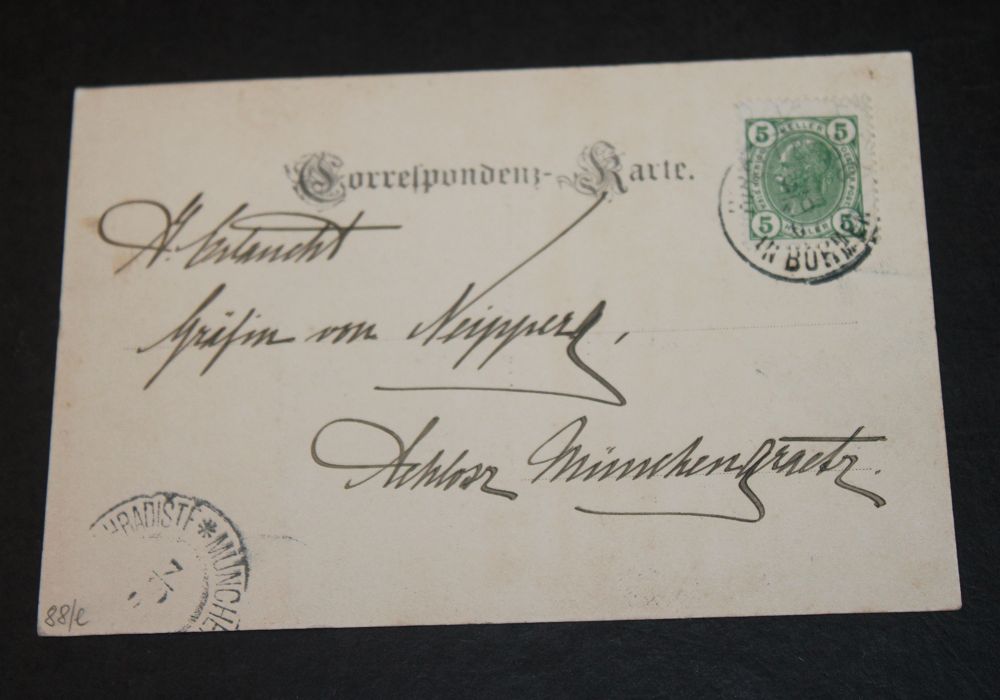 Correspondenz-Karte.
5 HELLER 5
5 HELLER 5
IN BÖHMEN
Erlaucht
Gräfin von Neipperg,
Schloss Münchengraetz.
HRADIŠTĚ * MÜNCHE
88/e